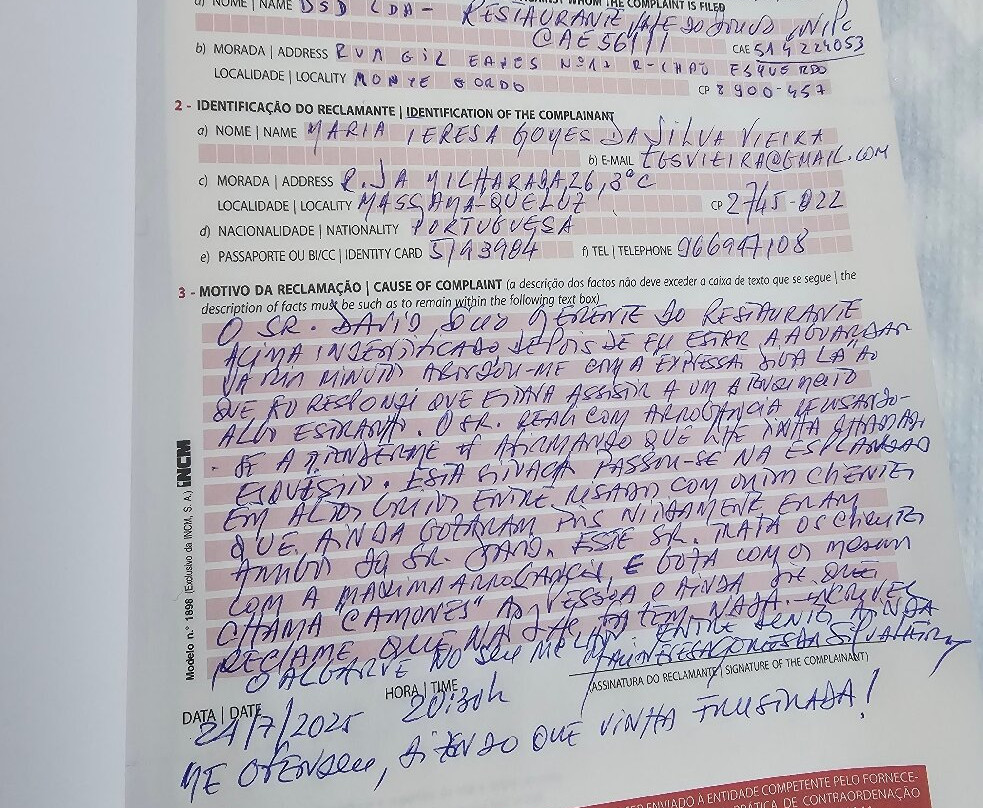 a) NOME | NAME DSD LDA - RESTAURANTE
CAE 56111 CAE 514224053
b) MORADA | ADDRESS RUA GIL EANES Nº12 R-CHAO ESQUERDO
LOCALIDADE | LOCALITY MONTE GORDO CP 8900-457
2 - IDENTIFICAÇÃO DO RECLAMANTE | IDENTIFICATION OF THE COMPLAINANT
a) NOME | NAME MARIA TERESA GOMES DA SILVA VIEIRA
b) E-MAIL TGSVIEIRA@GMAIL.COM
c) MORADA | ADDRESS R. DA MILHARADA, 26, 3º C
LOCALIDADE | LOCALITY MASSAMA-QUELUZ CP 2745-822
d) NACIONALIDADE | NATIONALITY PORTUGUESA
e) PASSAPORTE OU BI/CC | IDENTITY CARD 5193984 f) TEL | TELEPHONE 966947108
3 - MOTIVO DA RECLAMAÇÃO | CAUSE OF COMPLAINT (a descrição dos factos não deve exceder a caixa de texto que se segue | the
description of facts must be such as to remain within the following text box)
O SR. DAVID GERENTE DO RESTAURANTE
ACIMA INDENTIFICADO, DEPOIS DE EU ESTAR A AGUARDAR
MINUTOS COM A EXPRESSA
QUE EU RESPONDI QUE ESTAVA ASSISTIR A UM ATENDIMENTO
ALGO ESTRANHO. O SR. REAGIU COM ARROGÂNCIA RECUSANDO-
SE A ATENDER-ME AFIRMANDO QUE LHE TINHA CHAMADO
ESQUISITO. ESTA PASSOU-SE NA ESPLANADA
EM ALTOS GRITOS ENTRE RISADAS COM OUTROS CLIENTES
QUE AINDA GOZARAM POIS NITIDAMENTE ERAM
AMIGOS DO SR. ESTE SR. TRATA OS CLIENTES
COM A MAXIMA ARROGANCIA, E GOZA COM OS MESMOS
CHAMA "CAMONES" E AINDA DIZ QUE
RECLAME QUE NÃO LHE FAZEM NADA. INCRIVEL
O ALGARVE NO SEU MELHOR. ENTRETANTO AINDA
Maria Teresa Gomes da Silva Vieira
(ASSINATURA DO RECLAMANTE | SIGNATURE OF THE COMPLAINANT)
DATA | DATE HORA | TIME
24/7/2025 20:30h
ME OFENDEU, DIZENDO QUE VINHA FRUSTRADA!
Modelo n.º 1898 (Exclusivo da INCM, S. A.) INCM
SER ENVIADO À ENTIDADE COMPETENTE PELO FORNECE-
PRÁTICA DE CONTRAORDENAÇÃO